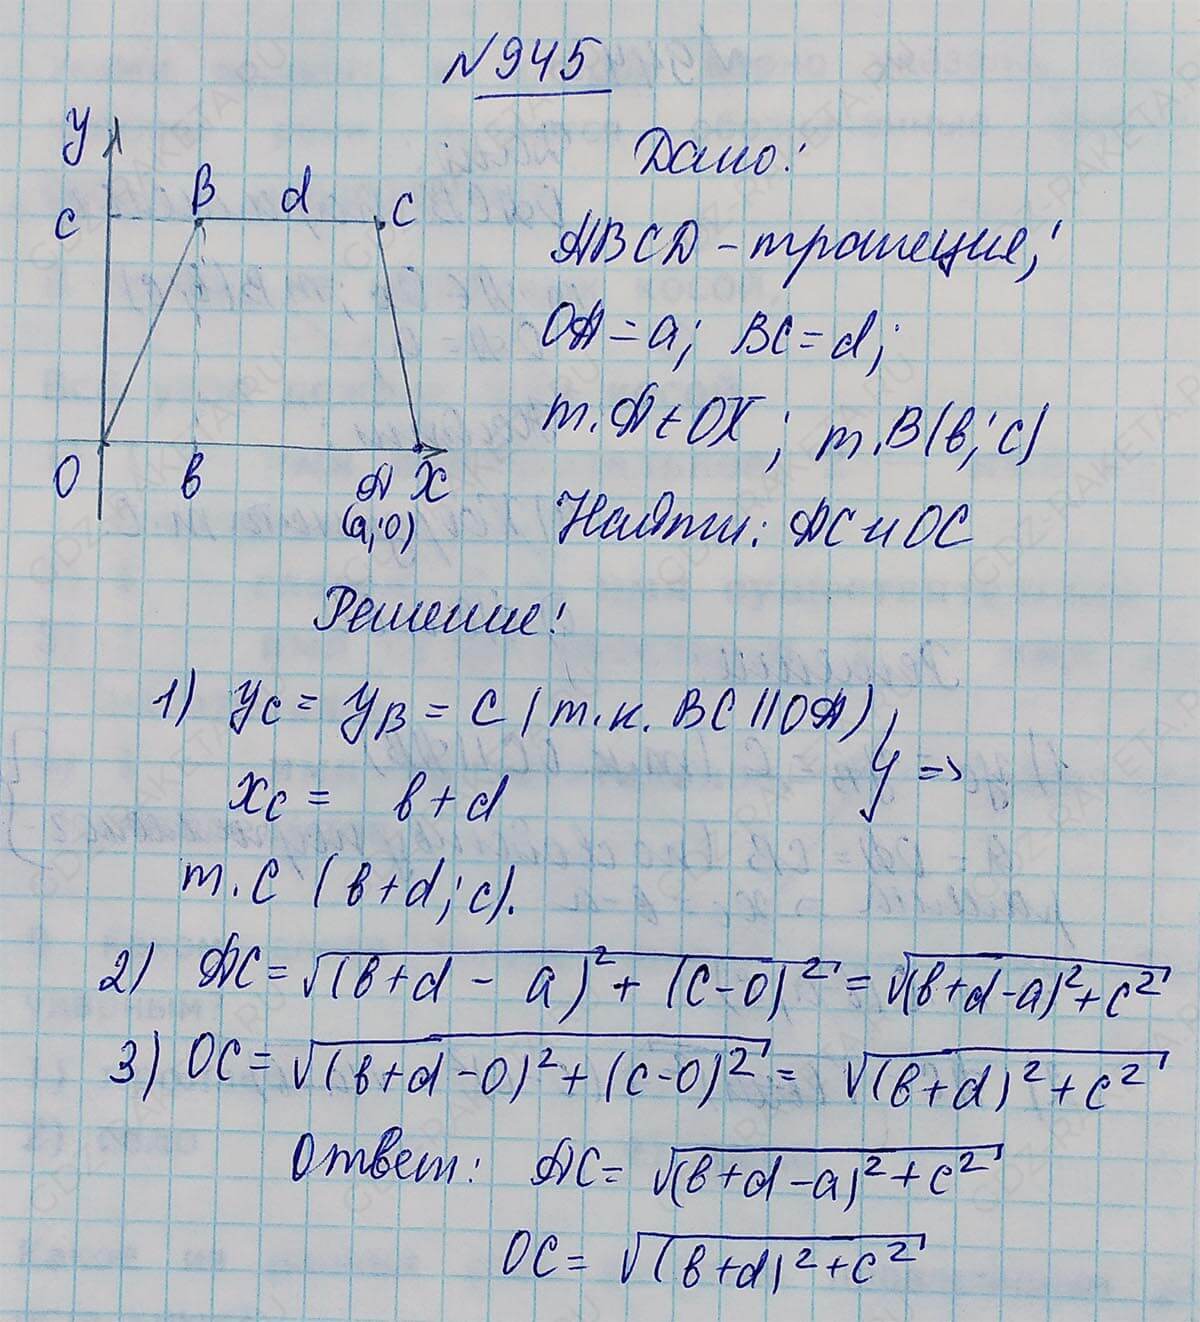 №945
y
c
B d C
O в A X
(a;0)
Дано:
ABCD - трапеция;
OA = a; BC = d;
т. A ∈ OX; т. B (в; c)
Найти: AC и OC
Решение:
1) yc = yB = c (т.к. BC || OA)
xc = в + d } =>
т. C (в+d; c).
2) AC = √(в+d - a)² + (c-0)² = √(в+d-a)² + c²
3) OC = √(в+d-0)² + (c-0)² = √(в+d)² + c²
Ответ: AC = √(в+d-a)² + c²
OC = √(в+d)² + c²
GDZ-RAKETA.RU